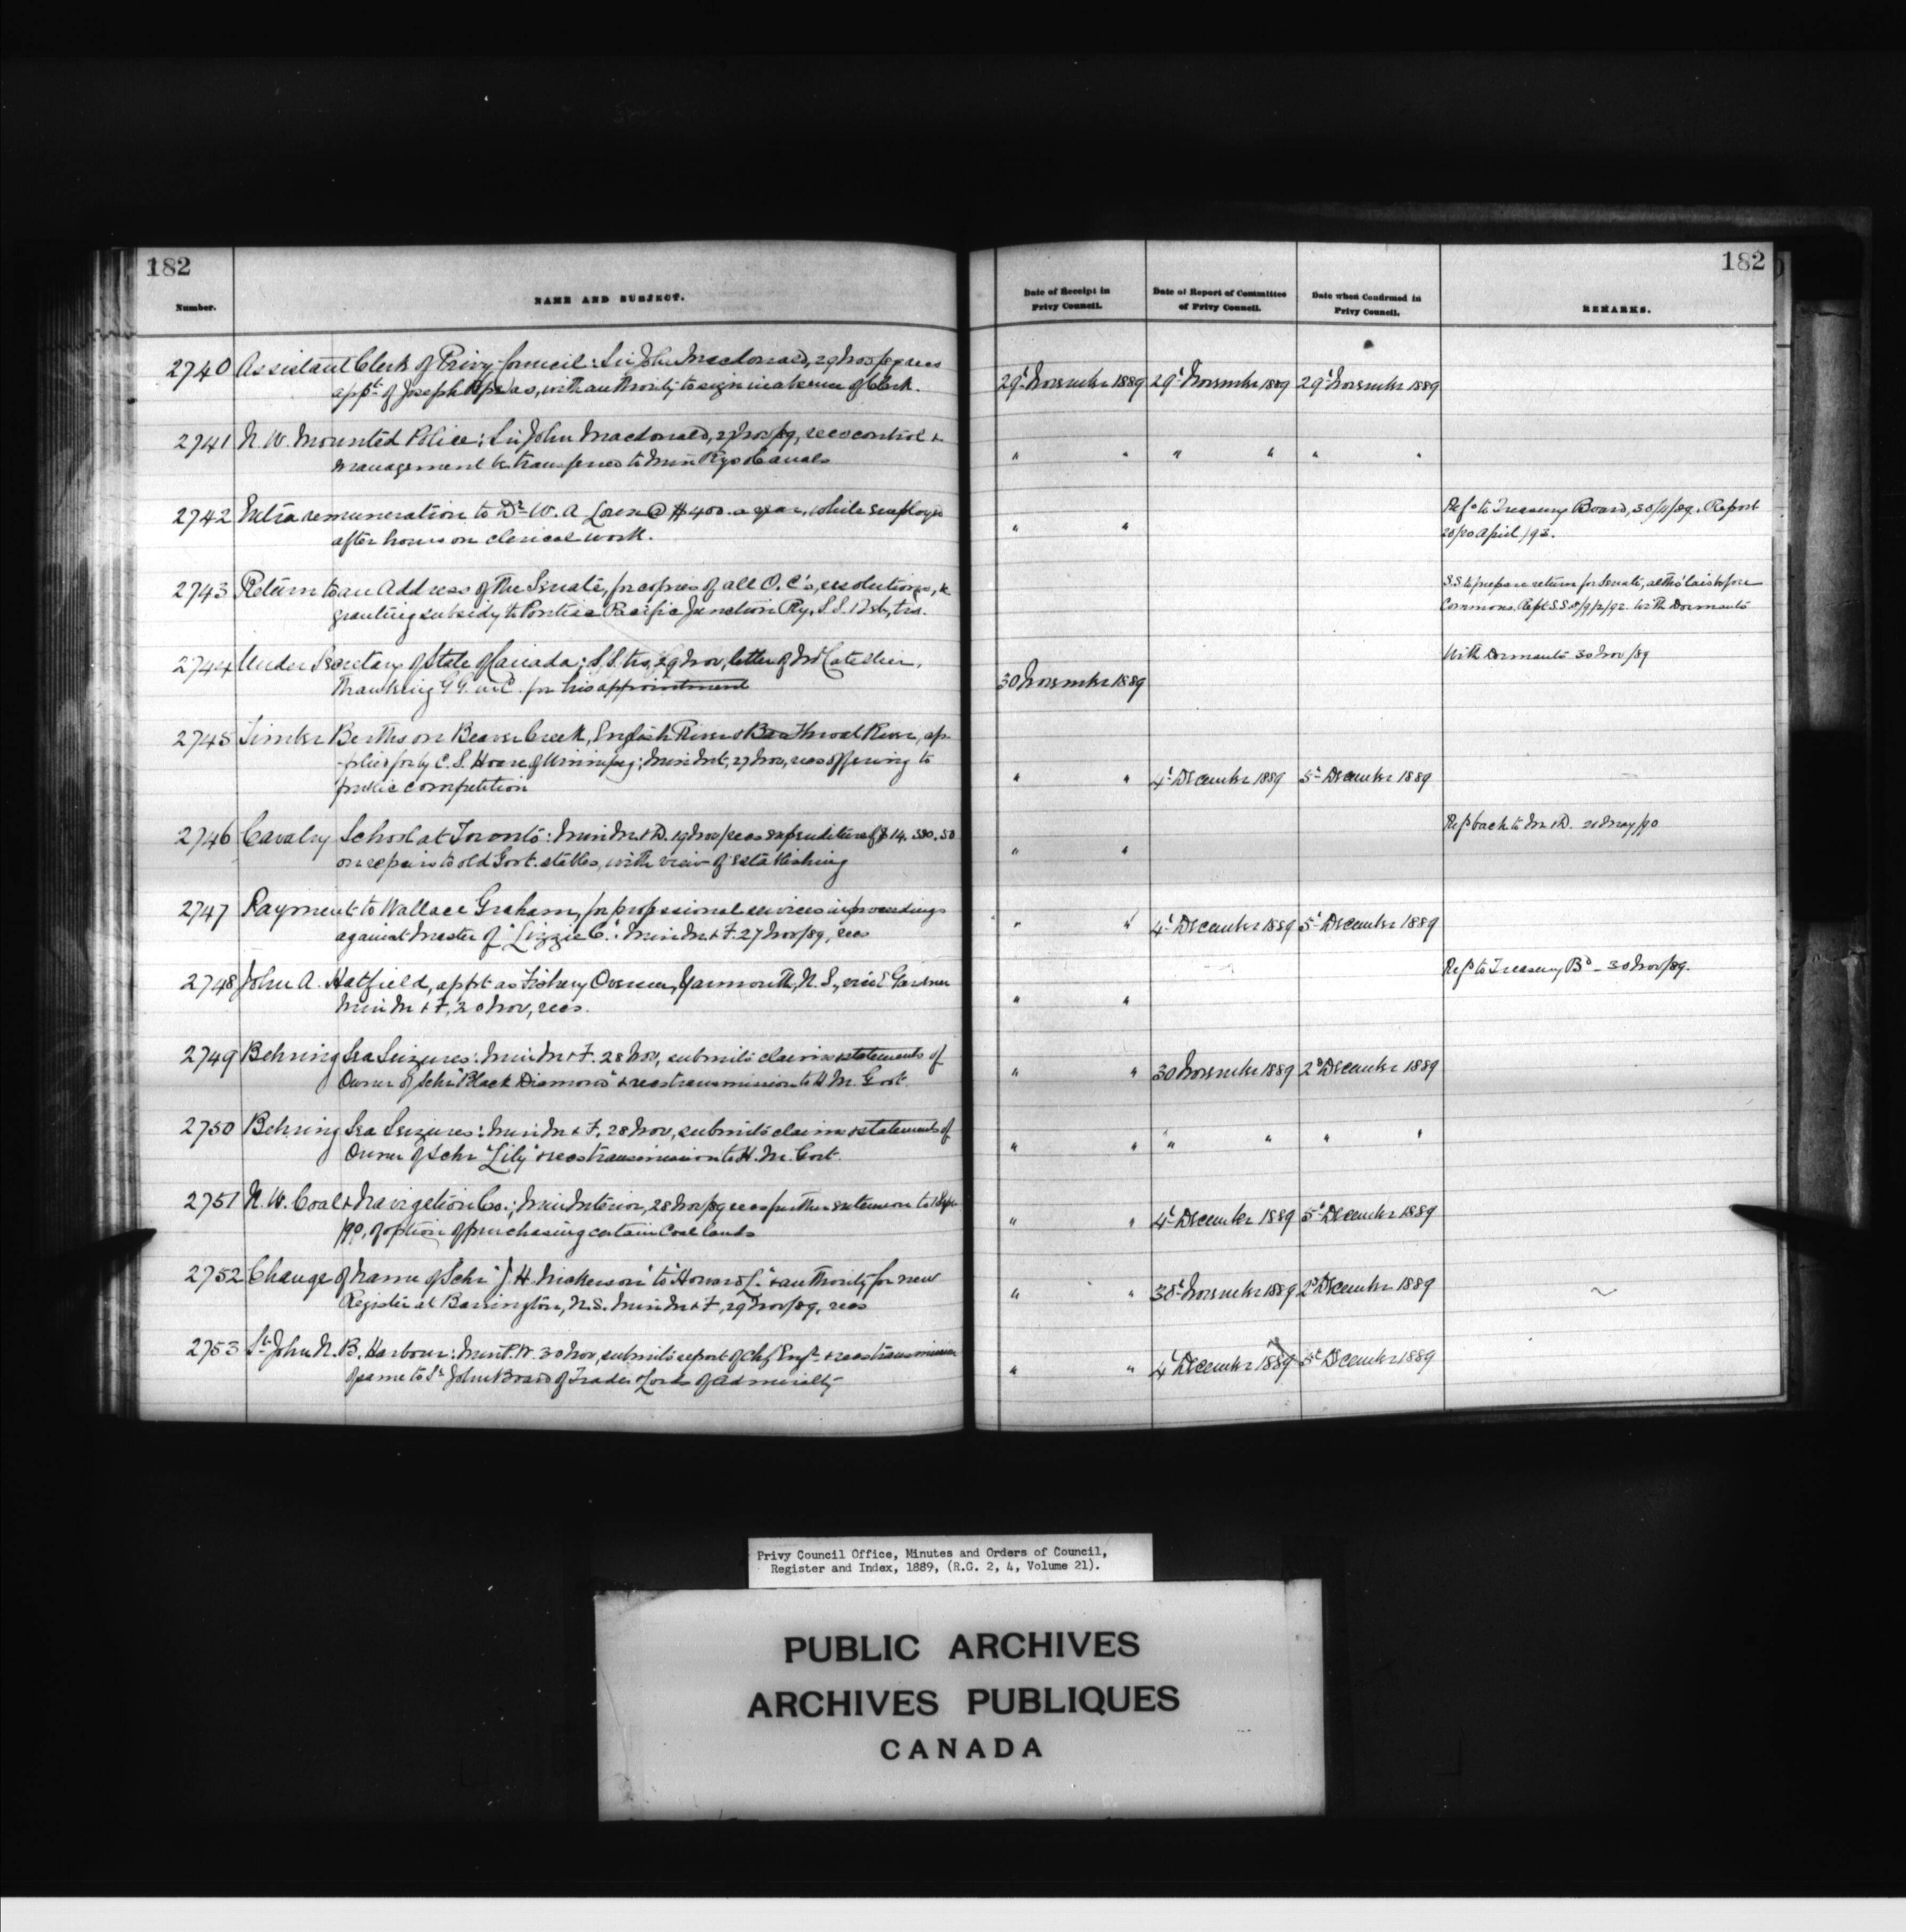 182
182
Number.
NAME AND SUBJECT.
Date of Receipt in
Privy Council.
Date of Report of Committee
of Privy Council.
Date when Confirmed in
Privy Council.
REMARKS.
2740 Assistant Clerk of Privy Council: Sir John Macdonald, 29 Nov/89 recs
appt. of Joseph Pope as, with authority to sign in absence of Clerk.
29t November 1889 29t November 1889 29t November 1889
2741 N. W. Mounted Police: Sir John Macdonald, 27 Nov/89, recs control &
management be transferred to Min Rys & Canals
" " " " " "
2742 Extra remuneration to Dr W. A @ $400. a year, while employed
after hours on clerical work.
" "
Refd to Treasury Board, 30/11/89. Report
April /93.
2743 Return to an Address of the Senate, for copies of all O.C's, resolutions, &c
granting subsidy to Pontiac Pacific Junction Ry. S.S. trs.
S.S. to prepare return for Senate, altho' laid before
Commons. With Dormants
2744 Under Secretary of State of Canada; S.S. trs, 29 Nov, letter of Mr Catellier,
thanking G.G. in C. for his appointment
30 November 1889
With Dormants 30 Nov/89
2745 Timber Berths on Beaver Creek, English River & Bear Throat River, ap-
-plied for by C. S. Hoare of Winnipeg; Min Int, 27 Nov, recs offering to
public competition
" " 4t December 1889 5t December 1889
2746 Cavalry School at Toronto: Min M & D. 19 Nov/ recs expenditure of $14.550.50
on repairs to old Govt. stables, with view of establishing
" "
Refd back to M & D. 21 May/90
2747 Payment to Wallace Graham, for professional services in proceedings
against Master of "Lizzie C.": Min M & F. 27 Nov/89, recs
" " 4t December 1889 5t December 1889
2748 John A. Hatfield, appt as Fishery Overseer, Yarmouth, N. S., vice E Gardner
Min M & F, 30 Nov, recs.
" "
Refd to Treasury Bd - 30 Nov/89.
2749 Behring Sea Seizures: Min M & F. 28 Nov, submits claim & statements of
Owner of Schr "Black Diamond" & recs transmission to H M. Govt.
" " 30 November 1889 2d December 1889
2750 Behring Sea Seizures: Min M & F. 28 Nov, submits claim & statements of
Owner of Schr "Lily" & recs transmission to H. M. Govt.
" " " " " "
2751 N. W. Coal & Navigation Co.; Min Interior, 28 Nov/89 recs further extension to 1 Sept
/90, of option of purchasing certain Coal lands
" " 4t December 1889 5t December 1889
2752 Change of name of Schr "J. H. Nickerson" to "Howard L." & authority for new
Register at Barrington, N.S. Min M & F, 29 Nov/89, recs
" " 30t November 1889 2d December 1889
2753 St John N. B. Harbour: Min P.W. 30 Nov, submits report of Chf Engr. & recs transmission
of same to St John Board of Trade & Lords of Admiralty
" " 4t December 1889 5t December 1889
Privy Council Office, Minutes and Orders of Council,
Register and Index, 1889, (R.G. 2, 4, Volume 21).
PUBLIC ARCHIVES
ARCHIVES PUBLIQUES
CANADA